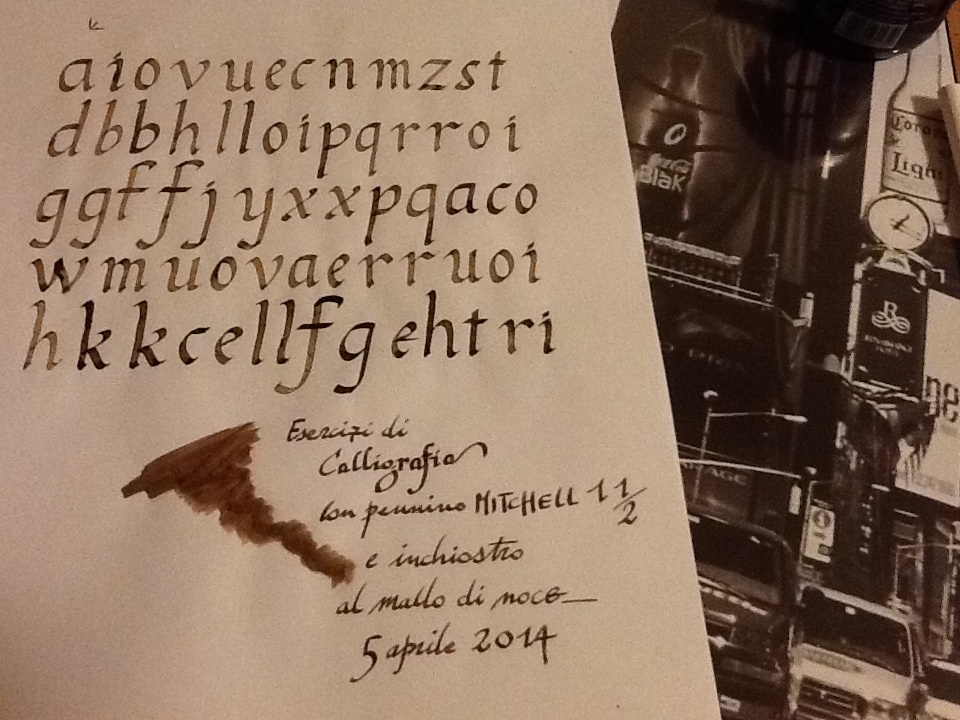 aiovuecnmzst
dbbhlloipqrroi
ggffjyxxpqaco
wmuovaerruoi
hkkcellfgehtri
Esercizi di
Calligrafia
con pennino MITCHELL 1 1/2
e inchiostro
al mallo di noce
5 aprile 2014
Coca-Cola
Blak
Corona
Light
R